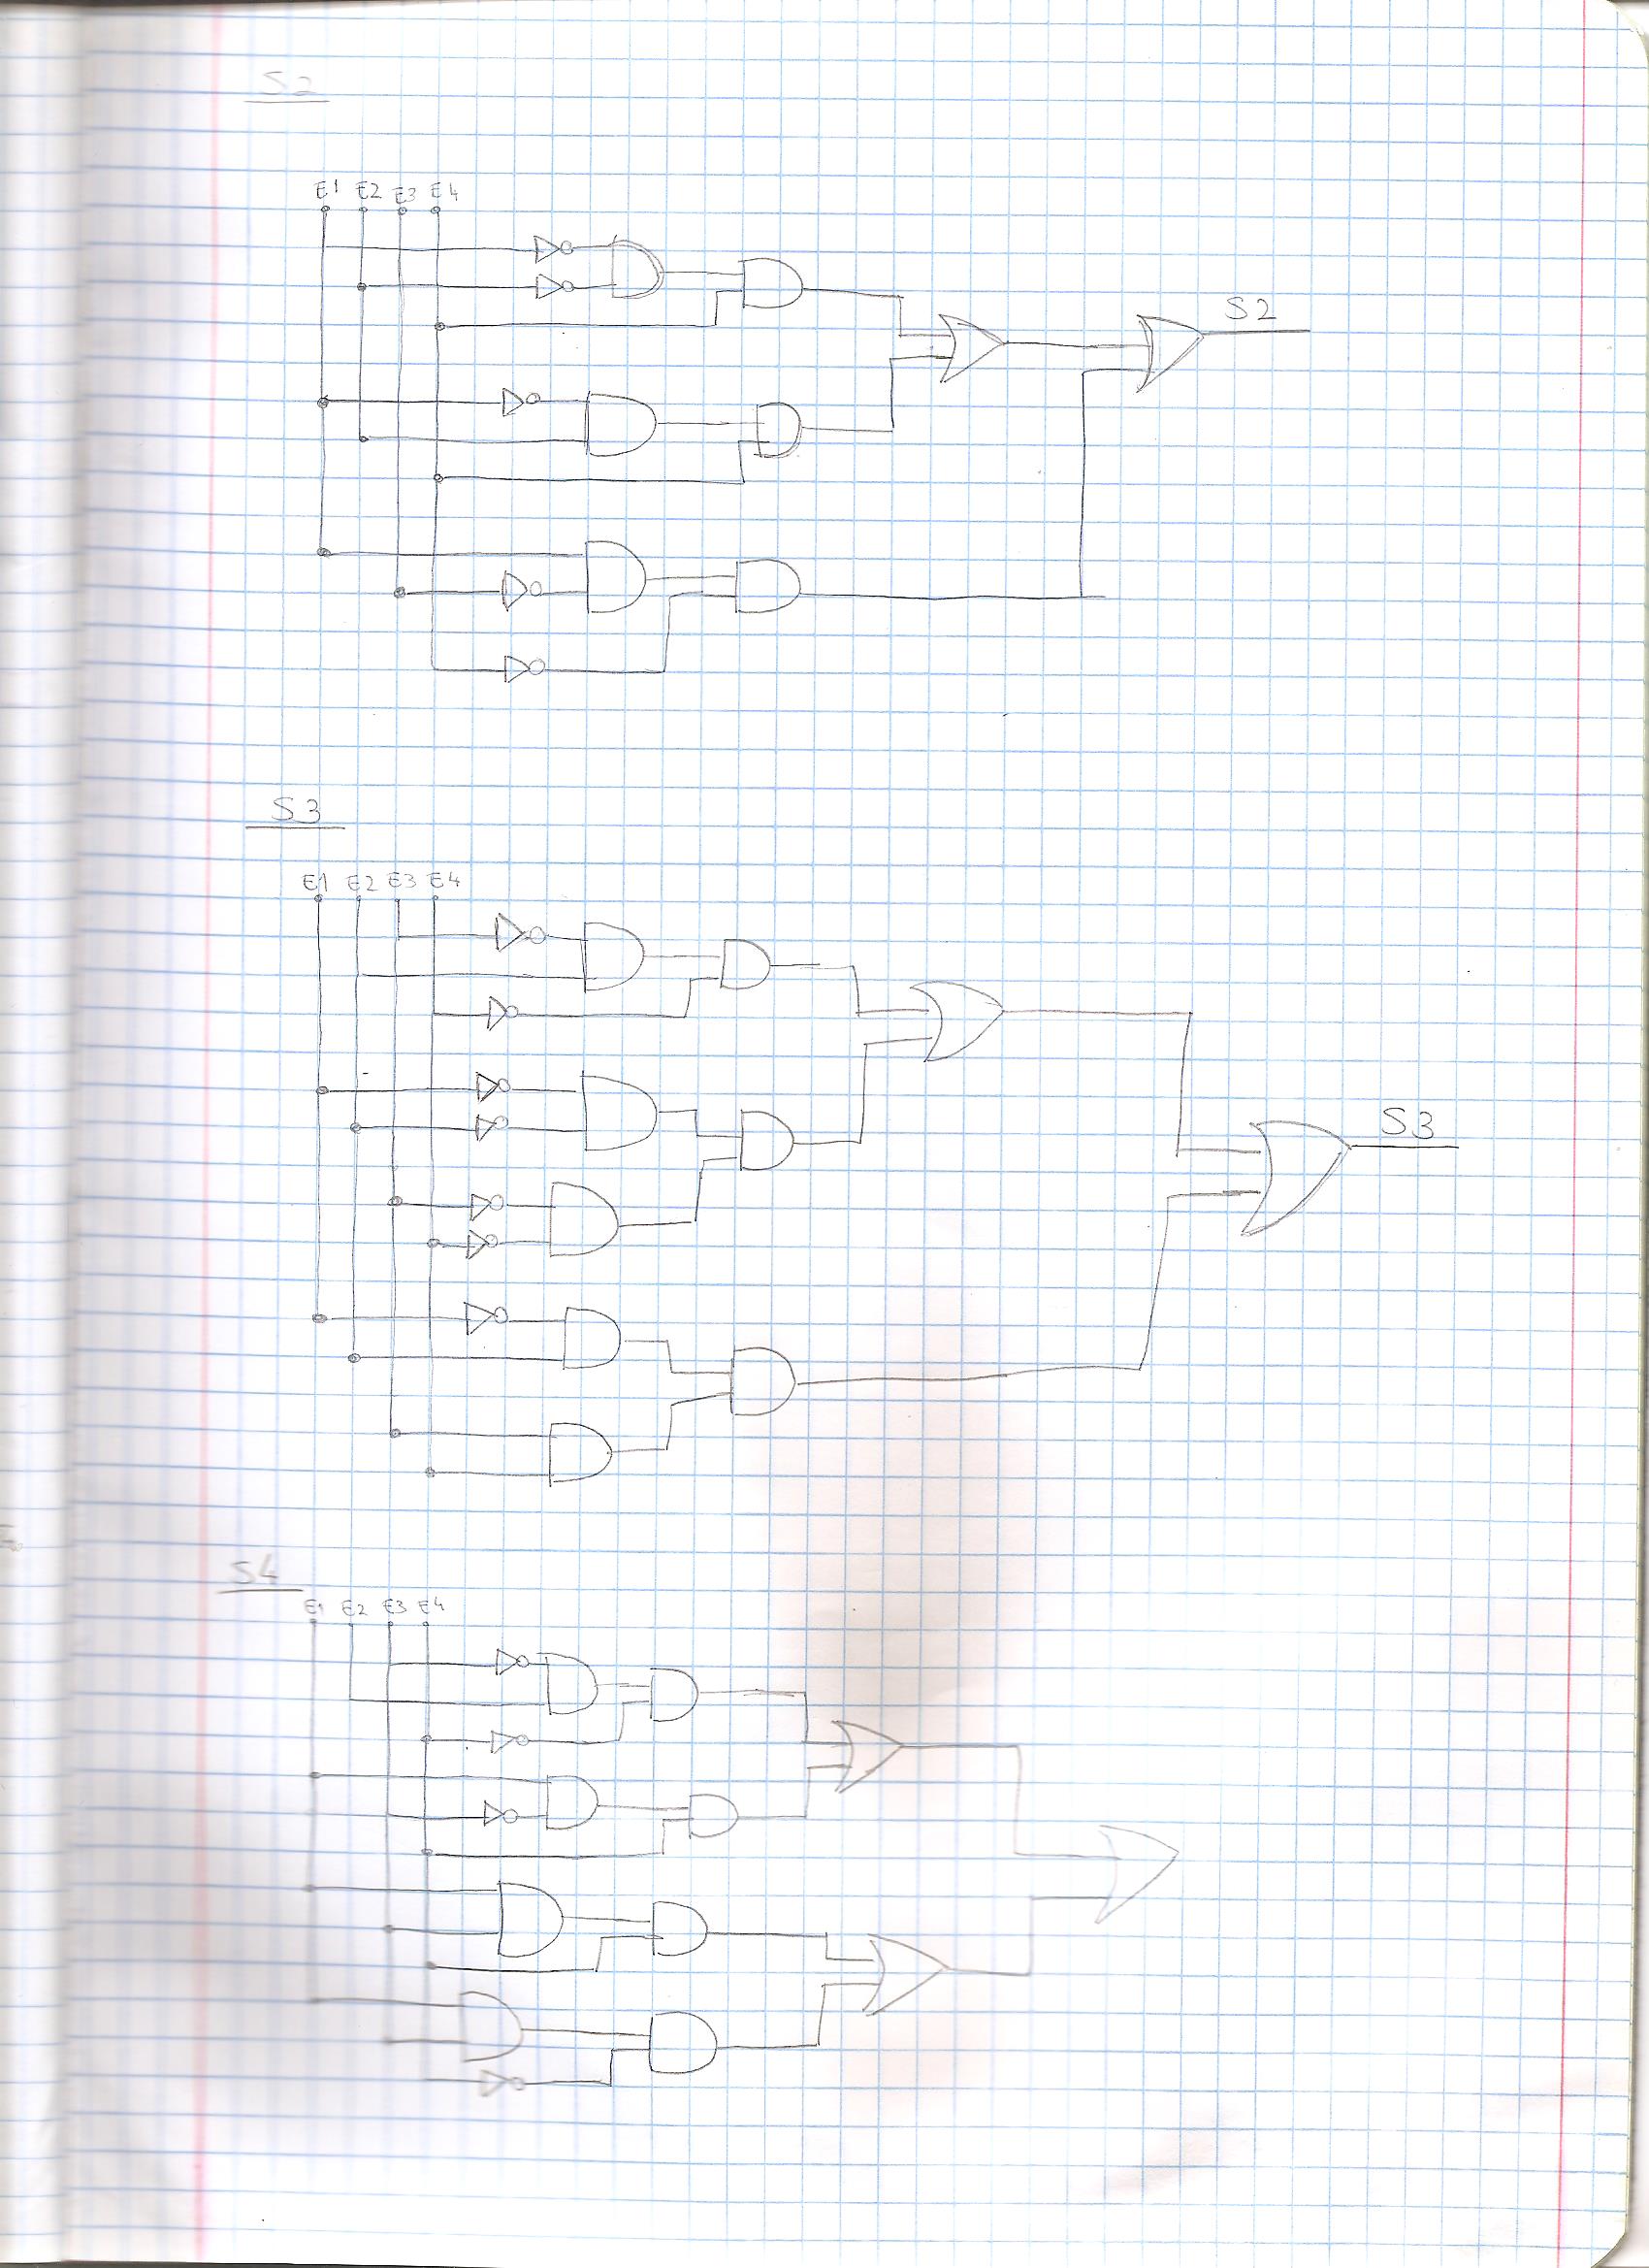 S2
E1 E2 E3 E4
S2
S3
E1 E2 E3 E4
S3
S4
E1 E2 E3 E4